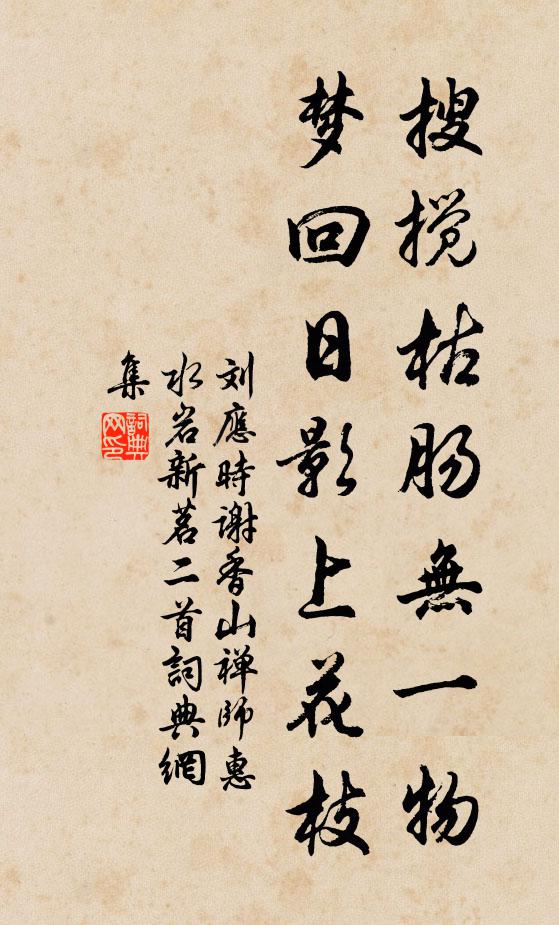 搜搅枯肠無一物
梦回日影上花枝
刘應時谢香山禅師惠
水岩新茗二首詞典網
集
詞典
网印